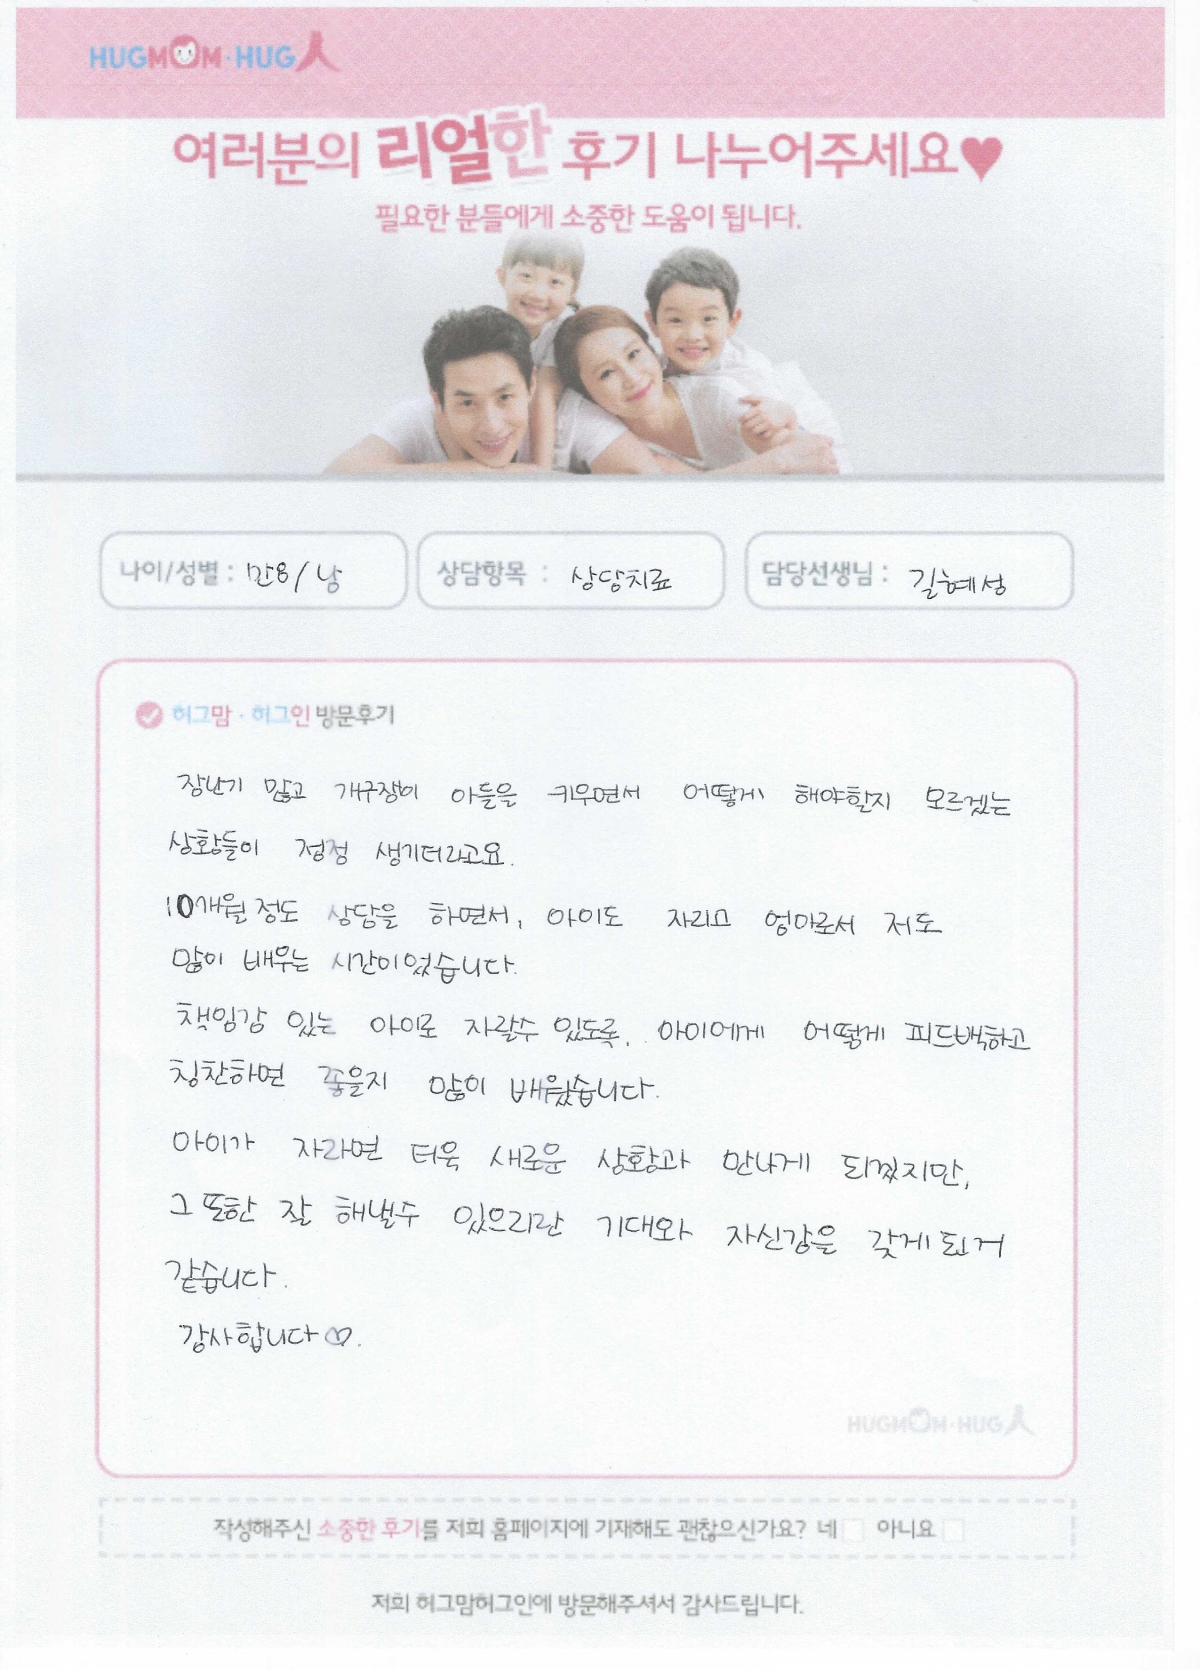 HUGMOM·HUG人
여러분의 리얼한 후기 나누어주세요♥
필요한 분들에게 소중한 도움이 됩니다.
나이/성별 : 만8/남
상담항목 : 상담치료
담당선생님 : 길혜성
허그맘·허그인 방문후기
장난기 많고 개구장이 아들을 키우면서 어떻게 해야할지 모르겠는
상황들이 점점 생기더라고요.
10개월정도 상담을 하면서, 아이도 자라고 엄마로서 저도
많이 배우는 시간이었습니다.
책임감 있는 아이로 자랄수 있도록, 아이에게 어떻게 피드백하고
칭찬하면 좋을지 많이 배웠습니다.
아이가 자라면 더욱 새로운 상황과 만나게 되겠지만,
그 또한 잘 해낼수 있으리란 기대와 자신감을 갖게 된거
같습니다.
감사합니다♡.
HUGMOM·HUG人
작성해주신 소중한 후기를 저희 홈페이지에 기재해도 괜찮으신가요? 네 아니요
저희 허그맘허그인에 방문해주셔서 감사드립니다.